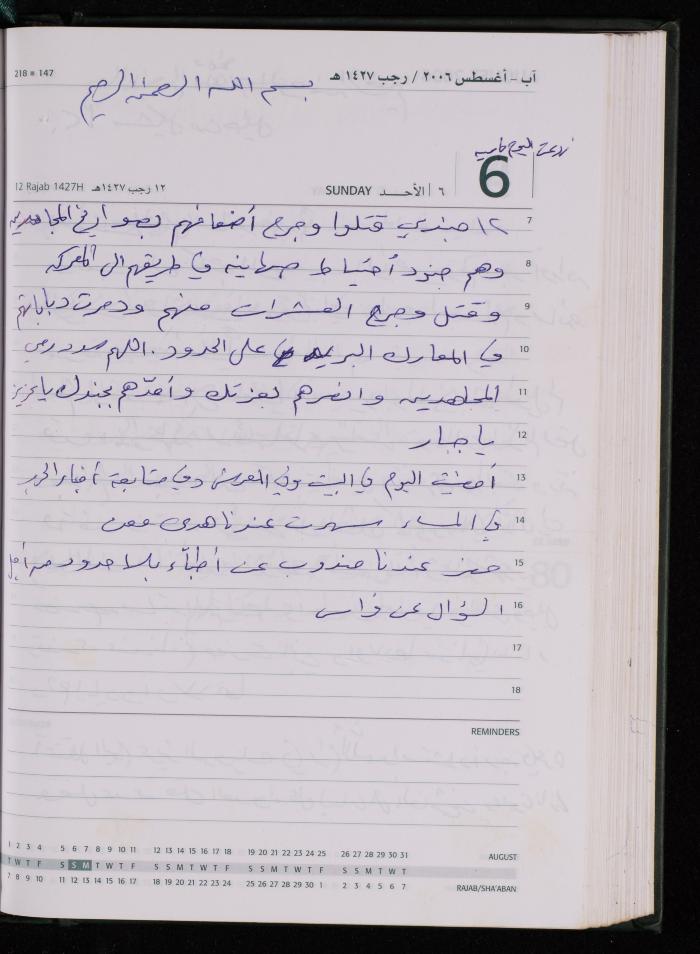 218 ■ 147
آب - أغسطس ٢٠٠٦ / رجب ١٤٢٧ هـ
بسم الله الرحمن الرحيم
اليوم
12 Rajab 1427H ١٢ رجب ١٤٢٧هـ SUNDAY ٦ | الأحــد 6
7 ١٢ جندي قتلوا وجرح أضعافهم بصواريخ المجاهدين
8 وهم جنود أحتياط صهاينه في طريقهم الى المعركه
9 وقتل وجرح العشرات منهم ودمرت دباباتهم
10 في المعارك البريه على الحدود . اللهم سدد رمي
11 المجاهدين وانصرهم بعزتك وأمدّهم بجندك يا عزيز
12 يا جبار
13 أمضيت اليوم في البيت وفي متابعة أخبار الحرب
14 في المساء سهرت عندنا هدى
15 عندنا مندوب عن أطبّاء بلا حدود من أجل
16 السؤال عن فراس
17
18
REMINDERS
1 2 3 4 5 6 7 8 9 10 11 12 13 14 15 16 17 18 19 20 21 22 23 24 25 26 27 28 29 30 31 AUGUST
T W T F S S M T W T F S S M T W T F S S M T W T F S S M T W T
7 8 9 10 11 12 13 14 15 16 17 18 19 20 21 22 23 24 25 26 27 28 29 30 1 2 3 4 5 6 7 RAJAB/SHA'ABAN